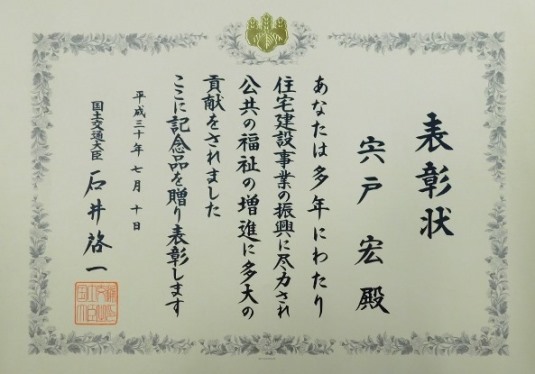 表彰状
宍戸 宏 殿
あなたは多年にわたり
住宅建設事業の振興に尽力され
公共の福祉の増進に多大の
貢献をされました
ここに記念品を贈り表彰します
平成三十年七月十日
国土交通大臣 石井啓一